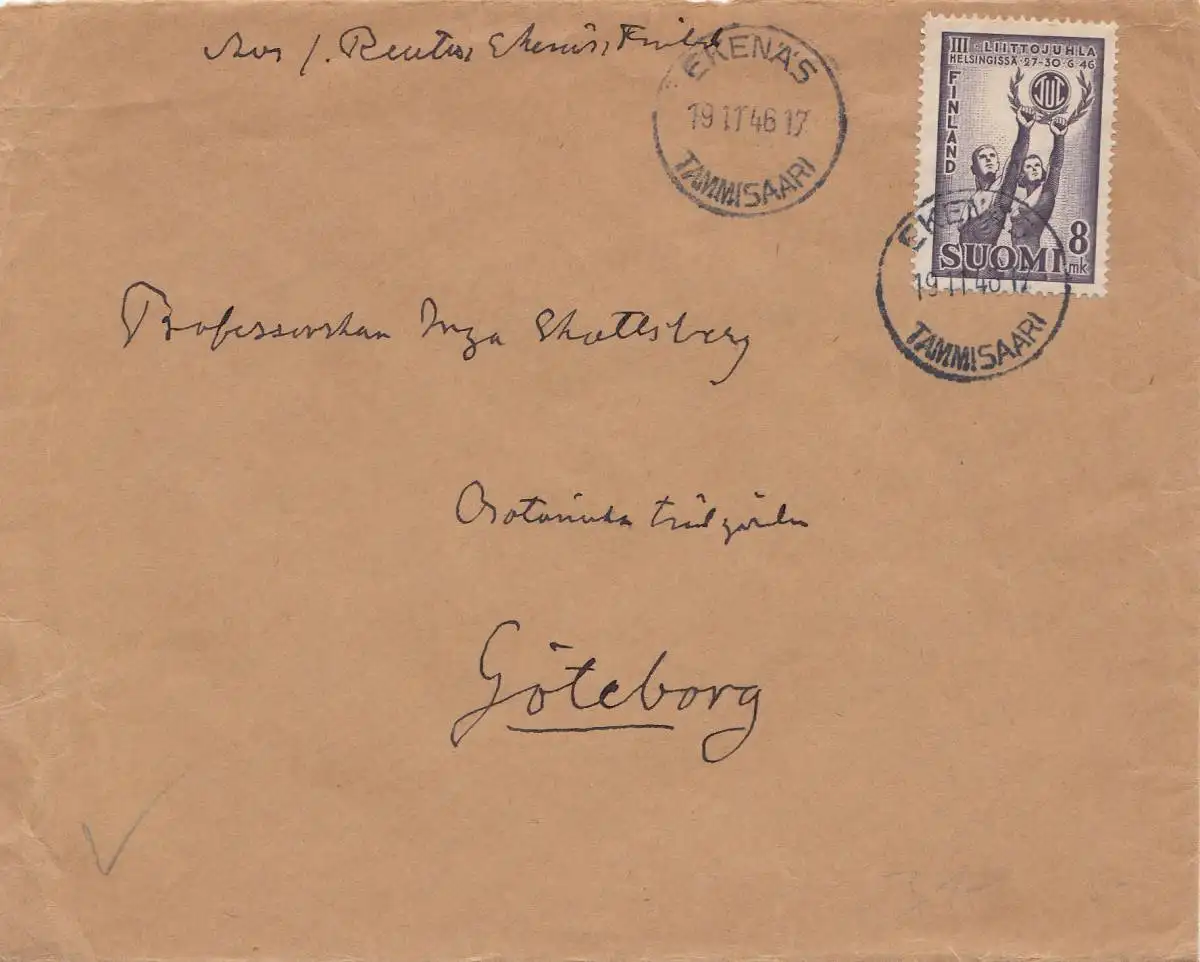 Avs /. Reuter, Ekenäs, Finland
EKENÄS
19 11 46 17
TAMMISAARI
III · LIITTOJUHLA
HELSINGISSÄ · 27-30 · 6 · 46
FINLAND
TUL
8
SUOMI mk
EKENÄS
19 11 46 17
TAMMISAARI
Professorskan Inga Skottsberg
Botaniska trädgården
Göteborg